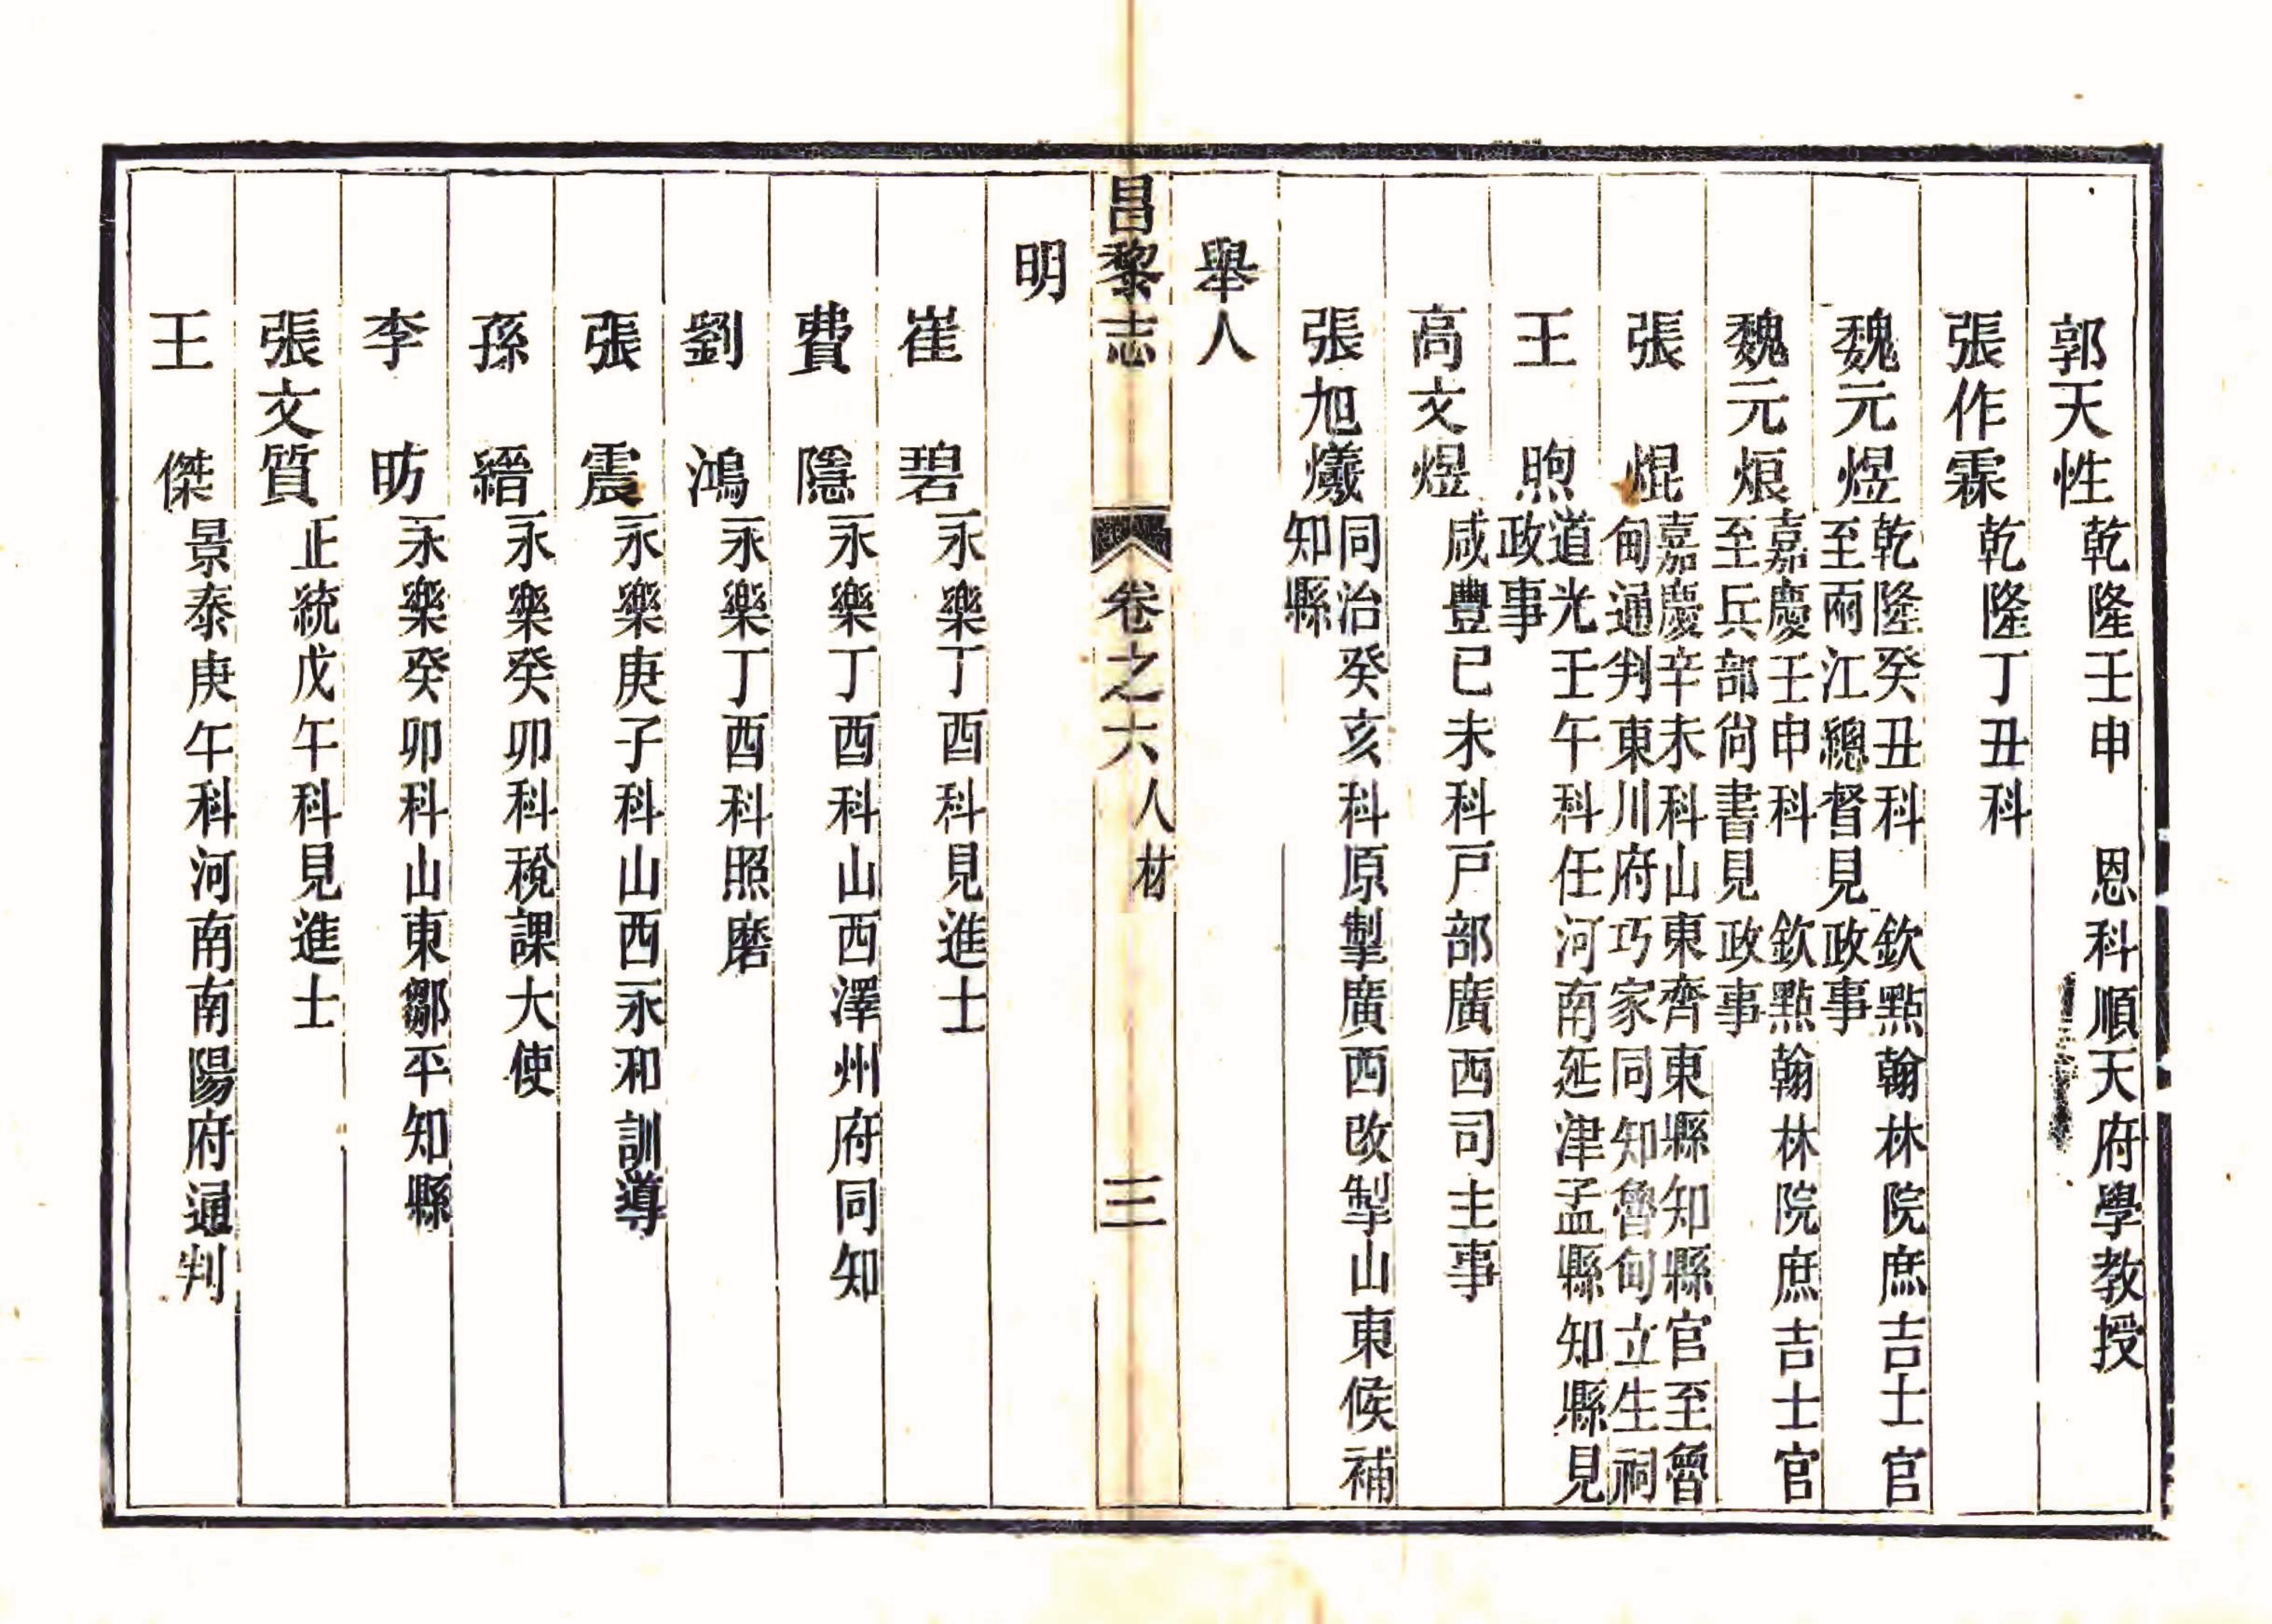 郭天性 乾隆壬申 恩科順天府學教授
張作霖 乾隆丁丑科
魏元煜 乾隆癸丑科 欽點翰林院庶吉士官
至兩江總督見政事
魏元烺 嘉慶壬申科 欽點翰林院庶吉士官
至兵部尙書見政事
張焜 嘉慶辛未科山東齊東縣知縣官至魯
甸通判東川府巧家同知魯甸立生祠
王煦 道光壬午科任河南延津孟縣知縣見
政事
高文煜 咸豐己未科戸部廣西司主事
張旭爔 同治癸亥科原掣廣西改掣山東候補
知縣
舉人
昌黎志 卷之六 人材 三
明
崔碧 永樂丁酉科見進士
費隱 永樂丁酉科山西澤州府同知
劉鴻 永樂丁酉科照磨
張震 永樂庚子科山西永和訓導
孫縉 永樂癸卯科稅課大使
李昉 永樂癸卯科山東鄒平知縣
張文質 正統戊午科見進士
王傑 景泰庚午科河南南陽府通判